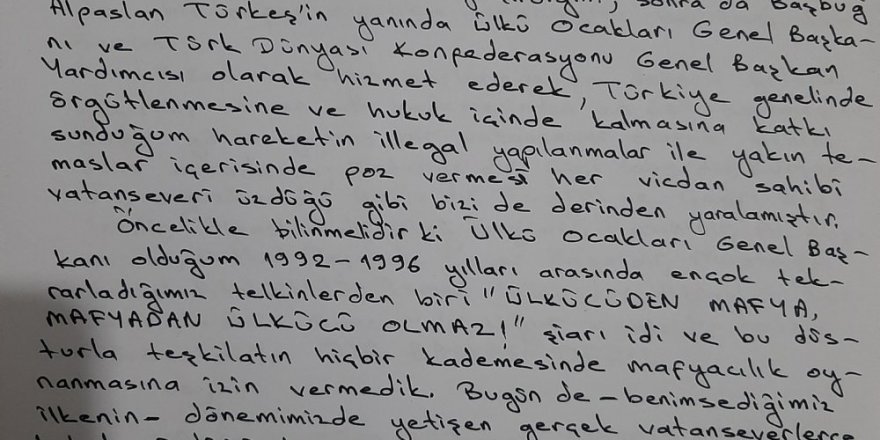 sonra da Başbuğ
Alpaslan Türkeş'in yanında Ülkü Ocakları Genel Başka-
nı ve Türk Dünyası Konfederasyonu Genel Başkan
Yardımcısı olarak hizmet ederek, Türkiye genelinde
örgütlenmesine ve hukuk içinde kalmasına katkı
sunduğum hareketin illegal yapılanmalar ile yakın te-
maslar içerisinde poz vermesi her vicdan sahibi
vatanseveri üzdüğü gibi bizi de derinden yaralamıştır.
Öncelikle bilinmelidir ki Ülkü Ocakları Genel Baş-
kanı olduğum 1992-1996 yılları arasında ençok tek-
rarladığımız telkinlerden biri "ÜLKÜCÜDEN MAFYA,
MAFYADAN ÜLKÜCÜ OLMAZ!" şiarı idi ve bu düs-
turla teşkilatın hiçbir kademesinde mafyacılık oy-
nanmasına izin vermedik. Bugün de -benimsediğimiz
ilkenin- dönemimizde yetişen gerçek vatanseverlerce